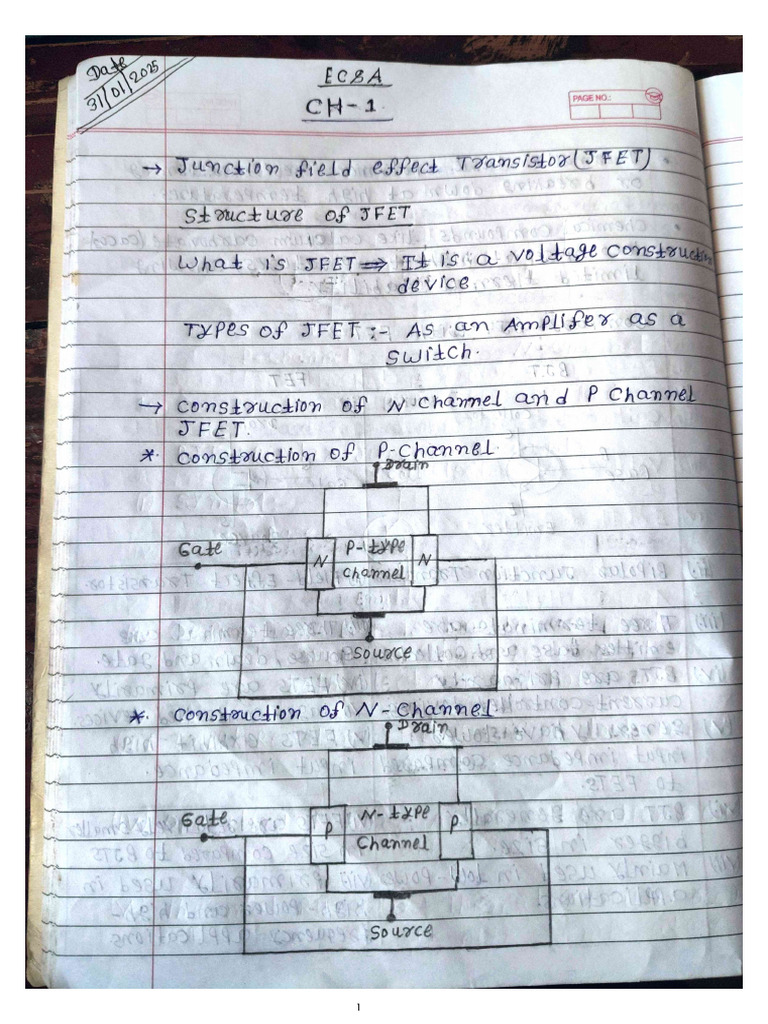 Date
31/01/2025
ECSA
CH-1.
PAGE NO.:
→ Junction field effect Transistor (JFET).
Structure of JFET
What is JFET ⇒ It is a voltage construction
device
Types of JFET :- As an Amplifer as a
switch.
→ construction of N channel and P channel
JFET.
* construction of P-channel.
Drain
Gate
N
P-type
channel
N
Source
*. construction of N-Channel
Drain
Gate
P
N-type
Channel
P
Source
1